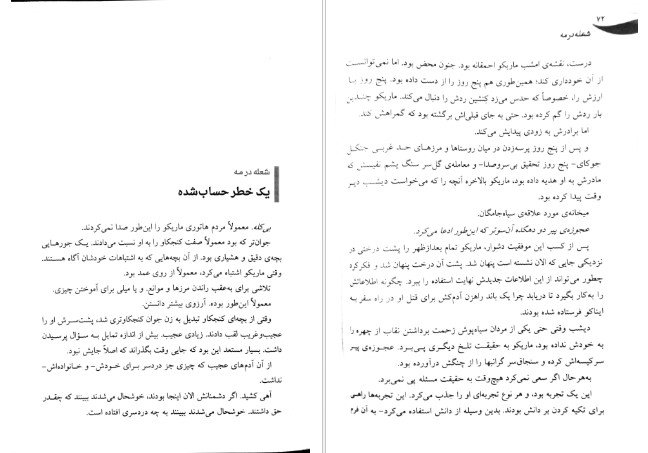 ۷۲
شعله در مه
درست، نقشه‌ی امشب ماریکو احمقانه بود. جنون محض بود. اما نمی‌توانست
از آن خودداری کند؛ همین‌طوری هم پنج روز را از دست داده بود. پنج روز با
ارزش را، خصوصاً که حدس می‌زد کنشین ردش را دنبال می‌کند. ماریکو چندین
بار ردش را گم کرده بود. حتی به جای قبلی‌اش برگشته بود که گمراهش کند.
اما برادرش به زودی پیدایش می‌کند.
و پس از پنج روز پرسه‌زدن میان روستاها و مرزهای حد غربی جنگل
جوکای- پنج روز تحقیق بی‌سروصدا- و معامله‌ی گل‌سر سنگ پشم نفیسش که
مادرش به او هدیه داده بود، ماریکو بالاخره آنچه را که می‌خواست دیشب دیر
وقت پیدا کرده بود.
میخانه‌ی مورد علاقه‌ی سیاه‌جامگان.
عجوزه‌ی پیر دو دهکده آن‌سوتر که این‌طور ادعا می‌کرد.
پس از کسب این موفقیت دشوار، ماریکو تمام بعدازظهر را پشت درختی در
نزدیکی جایی که الان نشسته است پنهان شد. پشت آن درخت پنهان شد و فکر کرد
چطور می‌تواند از این اطلاعات جدیدش نهایت استفاده را ببرد. چگونه اطلاعاتش
را به‌کار بگیرد تا دریابد چرا یک باند راهزن آدم‌کش برای قتل او در راه سفر به
ایناکو فرستاده شده بودند.
دیشب وقتی حتی یکی از مردان سیاه‌پوش زحمت برداشتن نقاب از چهره را
به خودش نداده بود، ماریکو به حقیقت تلخ دیگری پی‌برد. عجوزه‌ی پیر
سرکیسه‌اش کرده و سنجاق‌سر گرانبها را از چنگش درآورده بود.
به‌هرحال اگر سعی نمی‌کرد هیچ‌وقت به حقیقت مسئله پی نمی‌برد.
این یک تجربه بود، و هر نوع تجربه‌ای او را جذب می‌کرد. این تجربه‌ها راهی
برای تکیه کردن بر دانش بودند. بدین وسیله از دانش استفاده می‌کرد- به آن فرم
شعله در مه
یک خطر حساب‌شده
بی‌کله. معمولاً مردم هاتوری ماریکو را این‌طور صدا نمی‌کردند.
جوان‌تر که بود معمولاً صفت کنجکاو را به او نسبت می‌دادند. یک جورهایی
بچه‌ی دقیق و هشیاری بود. از آن بچه‌هایی که به اشتباهات خودشان آگاه هستند.
وقتی ماریکو اشتباه می‌کرد، معمولاً از روی عمد بود.
تلاشی برای به‌عقب راندن مرزها و موانع. و یا میلی برای آموختن چیزی.
معمولاً این‌طور بوده. آرزوی بیشتر دانستن.
وقتی از بچه‌ای کنجکاو تبدیل به زن جوان کنجکاوتری شد، پشت‌سرش او را
عجیب‌وغریب لقب دادند. زیادی عجیب. بیش از اندازه تمایل به سؤال پرسیدن
داشت. بسیار مستعد این بود که جایی وقت بگذراند که اصلاً جایش نبود.
از آن آدم‌های عجیب که چیزی جز دردسر برای خودش- و خانواده‌اش-
نداشت.
آهی کشید. اگر دشمنانش الان اینجا بودند، خوشحال می‌شدند ببینند که چقدر
حق داشتند. خوشحال می‌شدند ببینند به چه دردسری افتاده است.